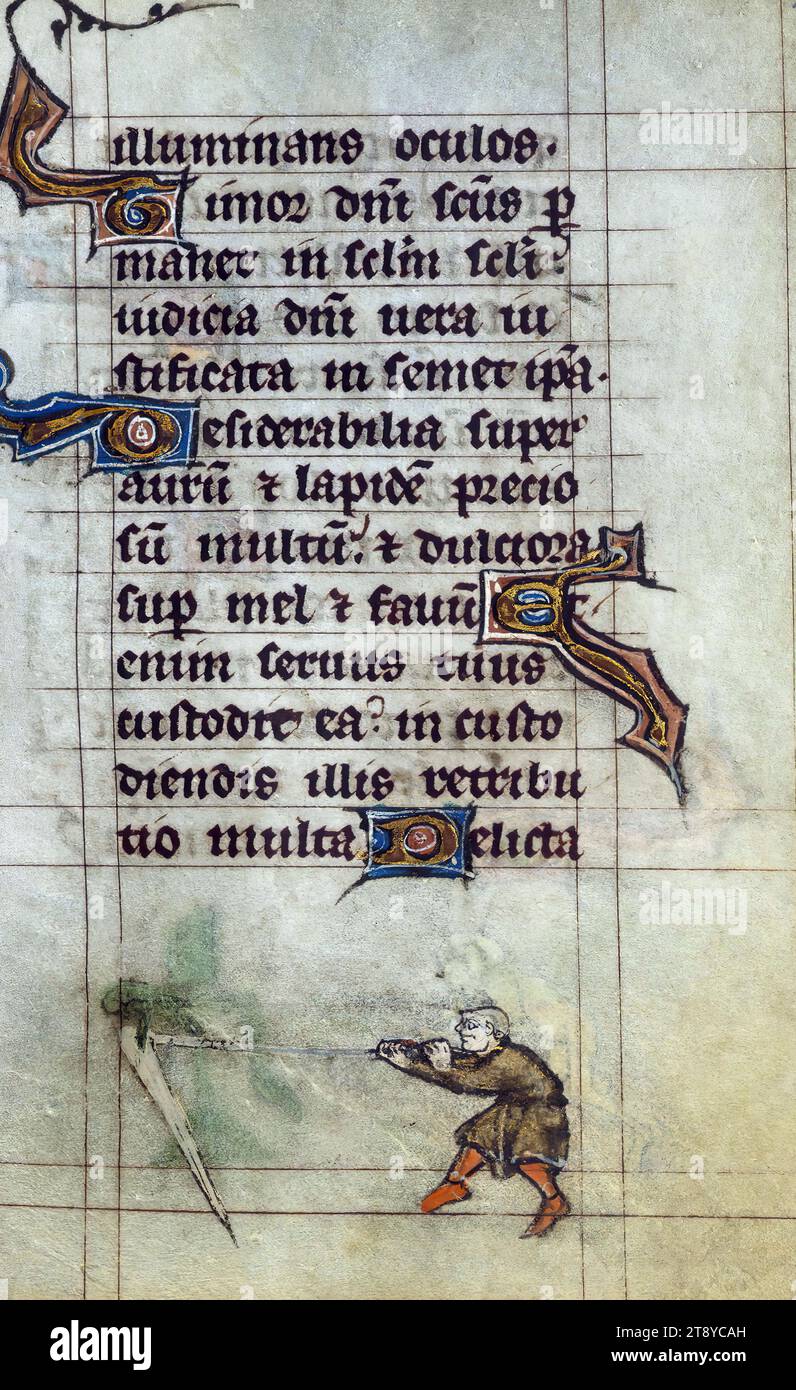 illuminans oculos.
Timor dñi scūs p
manet in sclm scli:
iudicia dñi uera iu
stificata in semet ipā.
Desiderabilia super
aurū ⁊ lapidē precio
sū multū: ⁊ dulciora
sup mel ⁊ fauū Et
enim seruus tuus
custodit ea: in custo
diendis illis retribu
tio multa Delicta
alamy
alamy
alamy
alamy
Image ID: 2T8YCAH
www.alamy.com